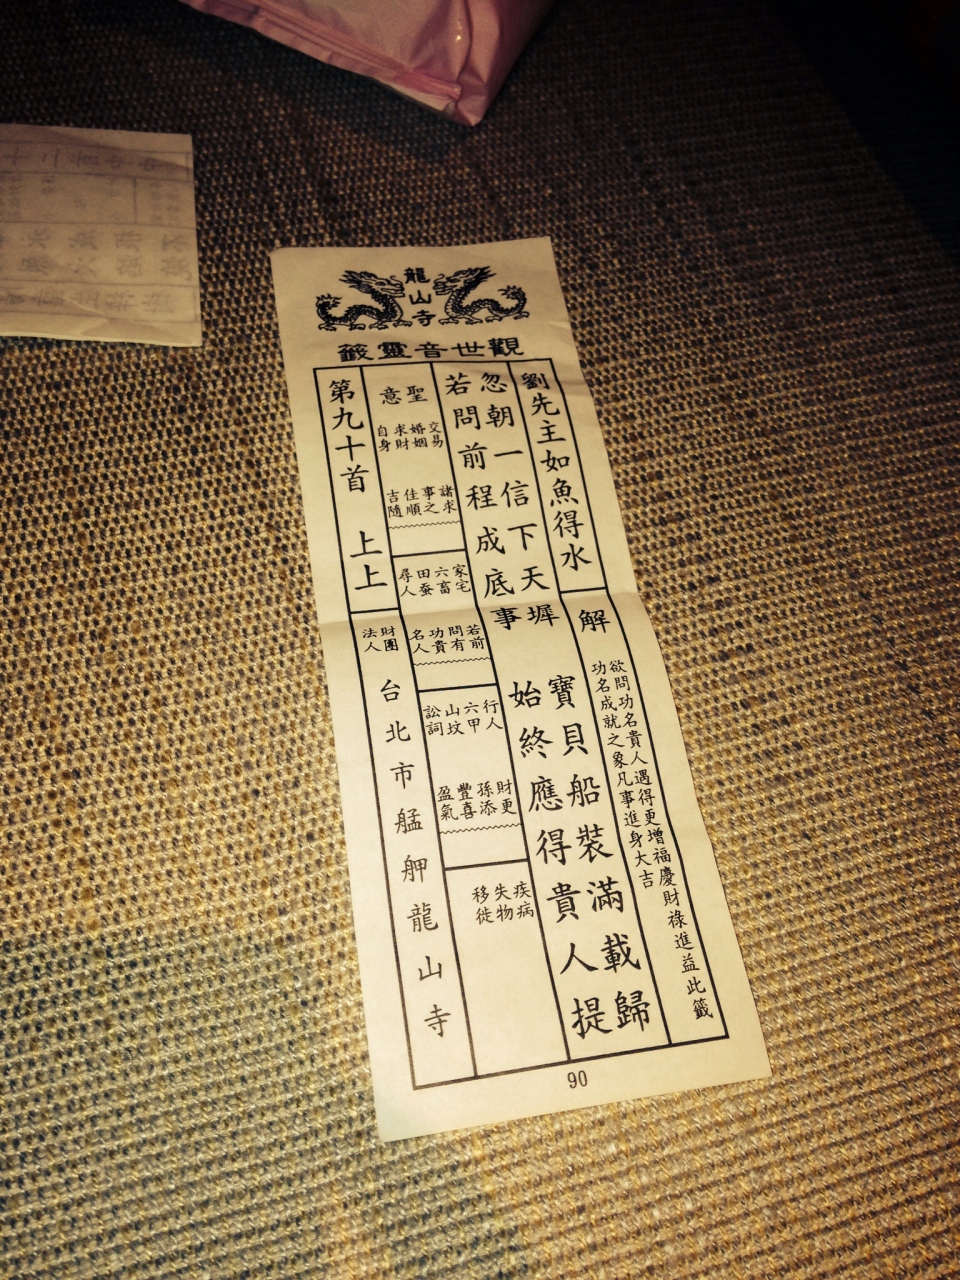 龍山寺
觀世音靈籤
劉先主如魚得水
解
欲問功名貴人遇得更增福慶財祿進益此籤
功名成就之象凡事進身大吉
忽朝一信下天墀 寶貝船裝滿載歸
若問前程成底事 始終應得貴人提
聖意
交易
婚姻
求財
自身
諸求
事之
佳順
吉隨
家宅
六畜
田蚕
尋人
若前
問有
功貴
名人
行人
六甲
山坟
訟詞
財更
孫添
豐喜
盈氣
疾病
失物
移徙
第九十首 上上
財團
法人
台北市艋舺龍山寺
90